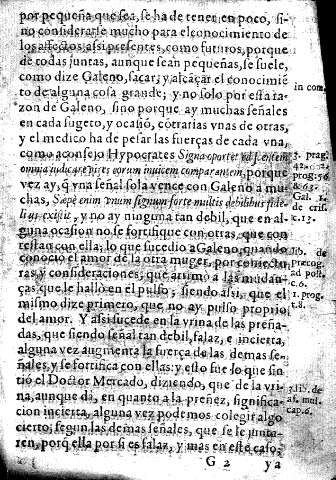 por pequeña que sea, se ha de tener en poco, si-
no considerarse mucho para el conocimiento de
los affectos, assi presentes, como futuros, porque
de todas juntas, aunque sean pequeñas, se suele,
como dize Galeno, sacar, y alcãçar el conocimiẽ
to de alguna cosa grande; y no solo por esta ra-
zon de Galeno, sino porque ay muchas señales
en cada sugeto, y ocasiõ, cõtrarias vnas de otras,
y el medico ha de pesar las fuerças de cada vna,
como aconsejo Hypocrates Signa oportet
omnia iudicare vires eorum inuicem comparantem, porque
vez ay, q̃ vna señal sola vence con Galeno a mu
chas, Sæpè enim vnum signum forte multis debilibus
existit, y no ay ninguna tan debil, que en al-
guna ocasion no se fortifique con otras, que con
testan con ella; lo que sucedio a Galeno, quando
conocio el amor de la otra muger, por coniectu
ras, y consideraciones; que arrimo a las mudan-
ças que le hallo en el pulso; siendo assi, que el
mismo dize primero, que no ay pulso proprio
del amor. Y assi sucede en la vrina de las preña-
das, que siendo señal tan debil, falaz, e incierta,
alguna vez augmenta la fuerça de las demas se-
ñales, y se fortifica con ellas: y esto fue lo que sin
tiò el Doctor Mercado, diziendo, que de la vri-
na, aunque dà, en quanto a la preñez, significa-
cion incierta, alguna vez podemos colegir algo
cierto, segun las demas señales, que se le junta-
ren, porq̃ ella por si es falaz, y mas en este caso,
G 2 ya
in com.
3. prag.
prog. 56
& 63.
Gal. 1.
de crisi.
c. 13.
lib. de
præcog.
ad post.
c. 6.
1. prog.
t. 8.
lib. de
af. mul.
cap. 6.